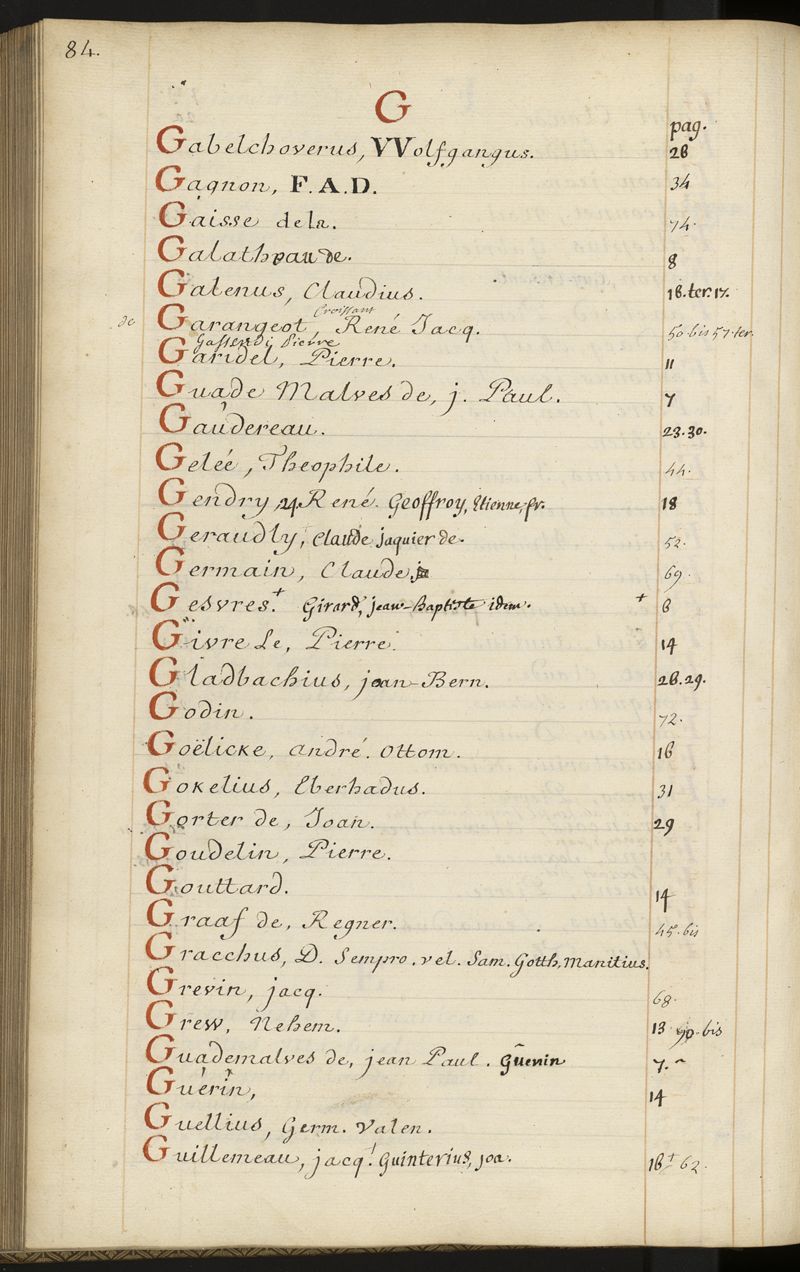 84.
G
pag.
Gabelchoverus, VVolfgangus. 28
Gagnon, F. A. D. 34
Gaisse dela. 74.
Galatheau de. 8
Galenus, Claudius. 16.ter.17.
Croissant
de Garangeot, René Jacq. 50 bis 57. ter.
Gassendi Pierre
Garidel, Pierre. 11
Guade Malves de, j. Paul. 7
Gaudereau. 23.30.
Gelée, Theophile. 44.
Gendry, René. Geoffroy, Etienne, fr. 18
Geraudly, Claude jaquier de. 52.
Germain, Claude, 69.
Gesvres.+ Girard, jean-Baptiste idem. + 6
Givre Le, Pierre. 14
Gladbachius, jean-Bern. 28.29.
Godin. 72.
Goëlicke, André. Ottom. 16
Gokelius, Eberhadus. 31
Gorter de, Joan. 29
Goudelin, Pierre.
Gouttard. 14
Graaf de, Regner. 45. bis
Gracchus, D. Sempro. vel. Sam. Gotth, Manitius.
Grevin, jacq. 68.
Grew, Nehem. 13 bis
Guademalves de, jean Paul. Guenin 7.
Guérin, 14
Guellius, Germ. Valen.
Guillemeau, jacq.+ Guinterius, joa. 16+ 62.